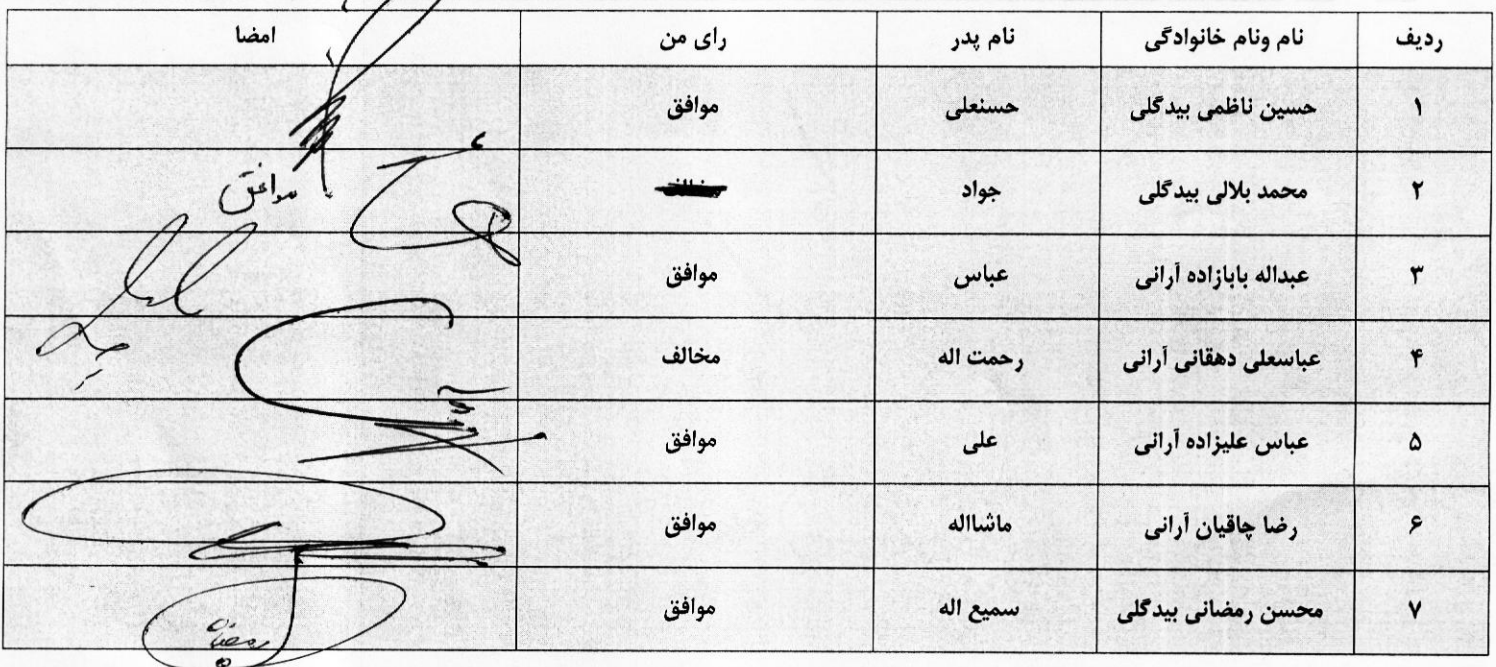 ردیف نام ونام خانوادگی نام پدر رای من امضا
۱ حسین ناظمی بیدگلی حسنعلی موافق
۲ محمد بلالی بیدگلی جواد موافق
۳ عبداله بابازاده آرانی عباس موافق
۴ عباسعلی دهقانی آرانی رحمت اله مخالف
۵ عباس علیزاده آرانی علی موافق
۶ رضا چاقیان آرانی ماشااله موافق
۷ محسن رمضانی بیدگلی سمیع اله موافق